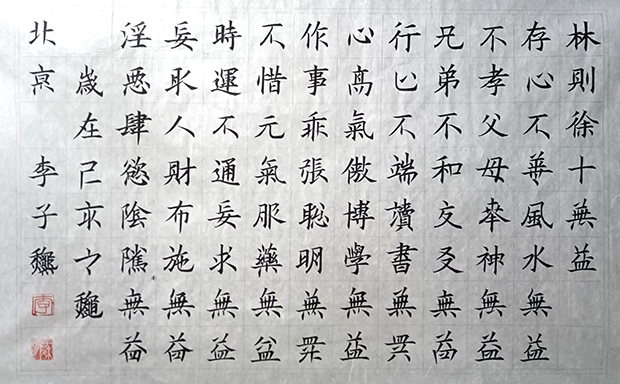 林則徐十無益
存心不善風水無益
不孝父母奉神無益
兄弟不和交友無益
行止不端讀書無益
心高氣傲博學無益
作事乖張聰明無益
不惜元氣服藥無益
時運不通妄求無益
妄取人財布施無益
淫惡肆慾陰騭無益
歲在己亥之龝
北京 李子